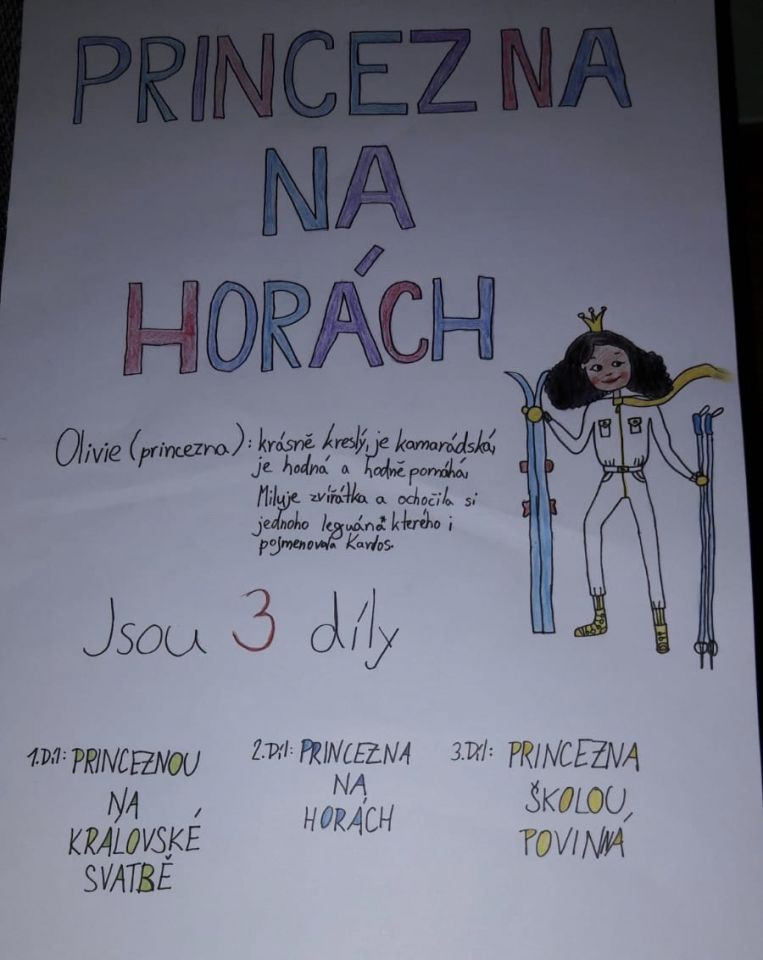 PRINCEZNA
NA
HORÁCH
Olivie (princezna): krásně kreslý, je kamarádská,
je hodná a hodně pomáhá,
Miluje zvířátka a ochočila si
jednoho leguána kterého i
pojmenovala Karlos.
Jsou 3 díly
1.Díl: PRINCEZNOU
NA
KRÁLOVSKÉ
SVATBĚ
2.Díl: PRINCEZNA
NA
HORÁCH
3.Díl: PRINCEZNA
ŠKOLOU
POVINNÁ